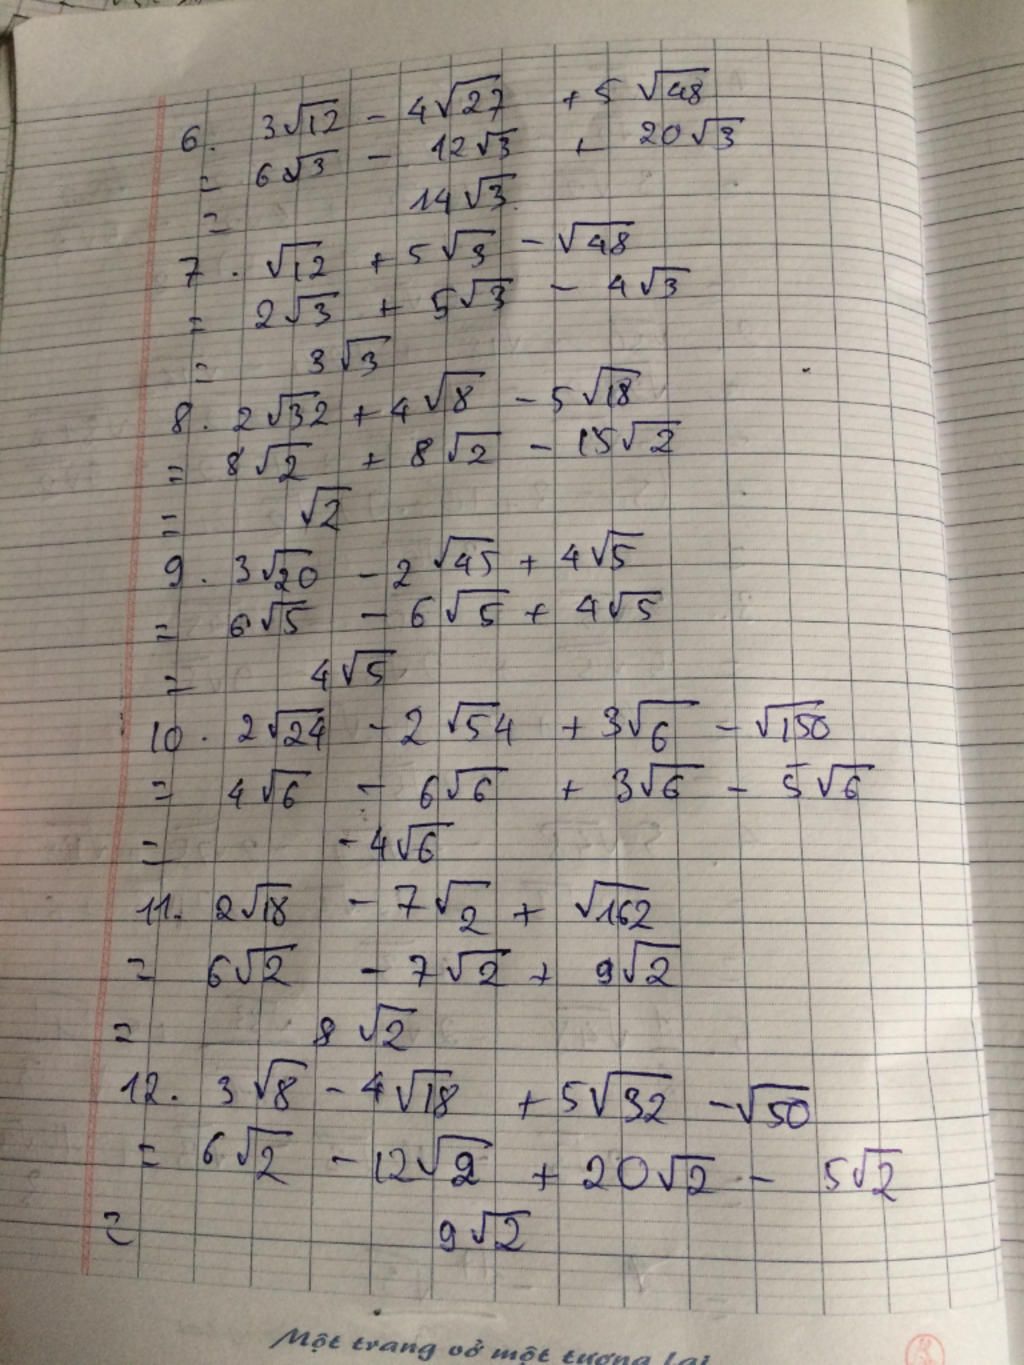 6. 3√12 - 4√27 + 5√48
= 6√3 - 12√3 + 20√3
= 14√3
7. √12 + 5√3 - √48
= 2√3 + 5√3 - 4√3
= 3√3
8. 2√32 + 4√8 - 5√18
= 8√2 + 8√2 - 15√2
= √2
9. 3√20 - 2√45 + 4√5
= 6√5 - 6√5 + 4√5
= 4√5
10. 2√24 - 2√54 + 3√6 - √150
= 4√6 - 6√6 + 3√6 - 5√6
= -4√6
11. 2√18 - 7√2 + √162
= 6√2 - 7√2 + 9√2
= 8√2
12. 3√8 - 4√18 + 5√32 - √50
= 6√2 - 12√2 + 20√2 - 5√2
= 9√2
Một trang vở một tương lai